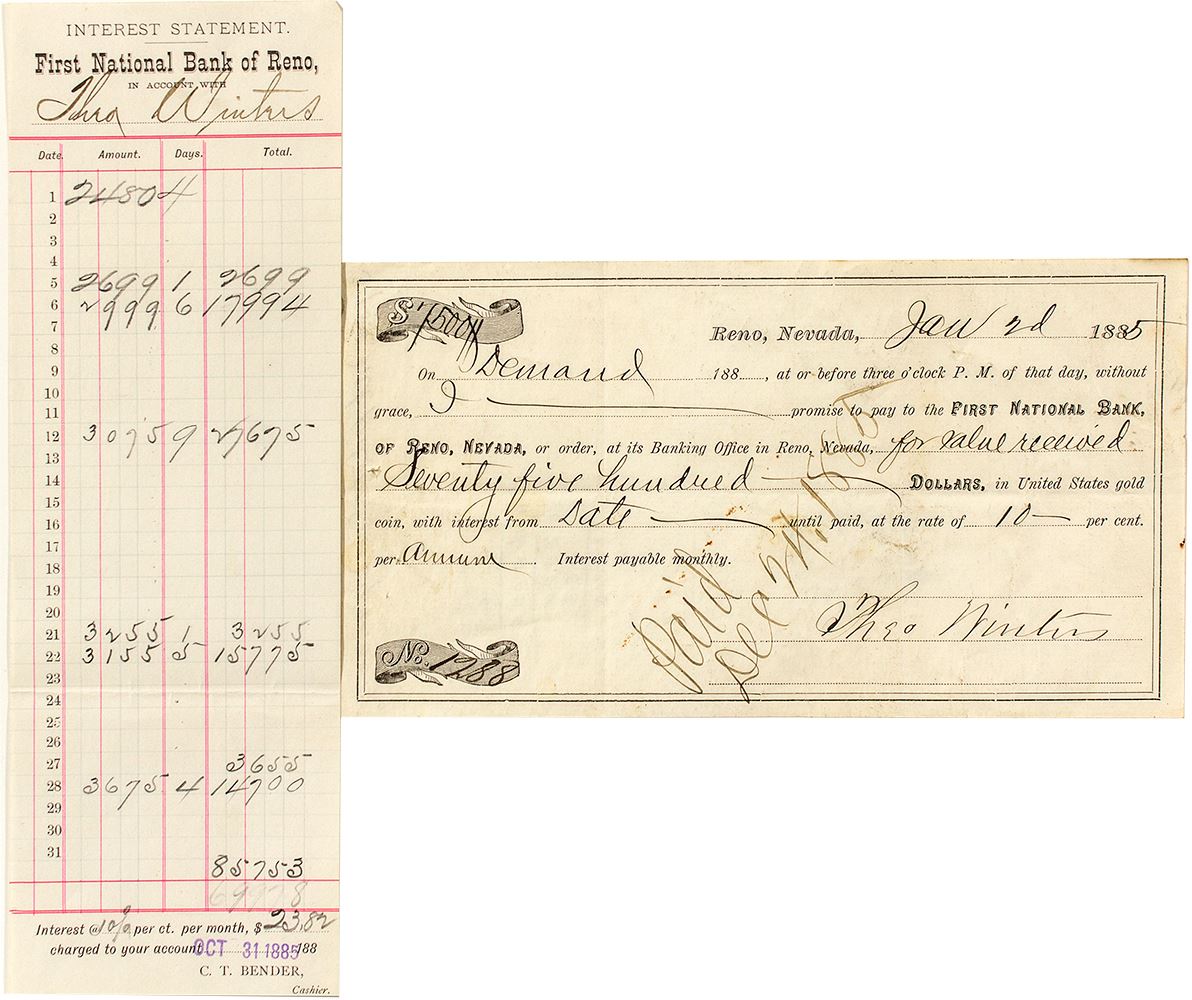 INTEREST STATEMENT.
First National Bank of Reno,
IN ACCOUNT WITH
Theo Winters
Date. Amount. Days. Total.
1 2480 4
2
3
4
5 2699 1 2699
6 2999 6 17994
7
8
9
10
11
12 3075 9 27675
13
14
15
16
17
18
19
20
21 3255 1 3255
22 3155 5 15775
23
24
25
26
27 3655
28 3675 4 14700
29
30
31
85753
Interest @ 10% per ct. per month, $23.82
charged to your account OCT 31 1885 188
C. T. BENDER,
Cashier.
$7500
Reno, Nevada, Jan 2d 1885
On Demand 188......, at or before three o'clock P. M. of that day, without
grace, I promise to pay to the FIRST NATIONAL BANK,
OF RENO, NEVADA, or order, at its Banking Office in Reno, Nevada, for value received
Seventy five hundred DOLLARS, in United States gold
coin, with interest from Date until paid, at the rate of 10 per cent.
per Annum. Interest payable monthly.
Theo Winters
No. 1288
Paid
Dec 24. 1885